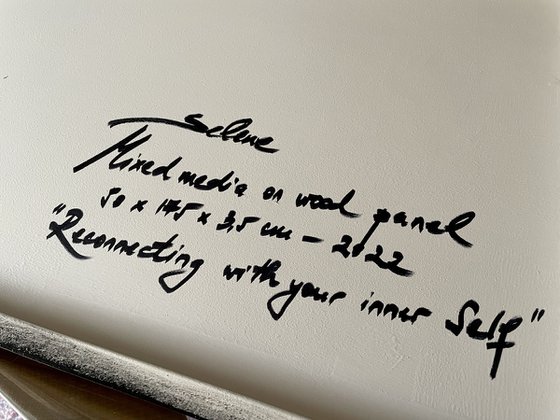 Selene
Mixed media on wood panel
50 x 175 x 3,5 cm – 2022
"Reconnecting with your inner Self"